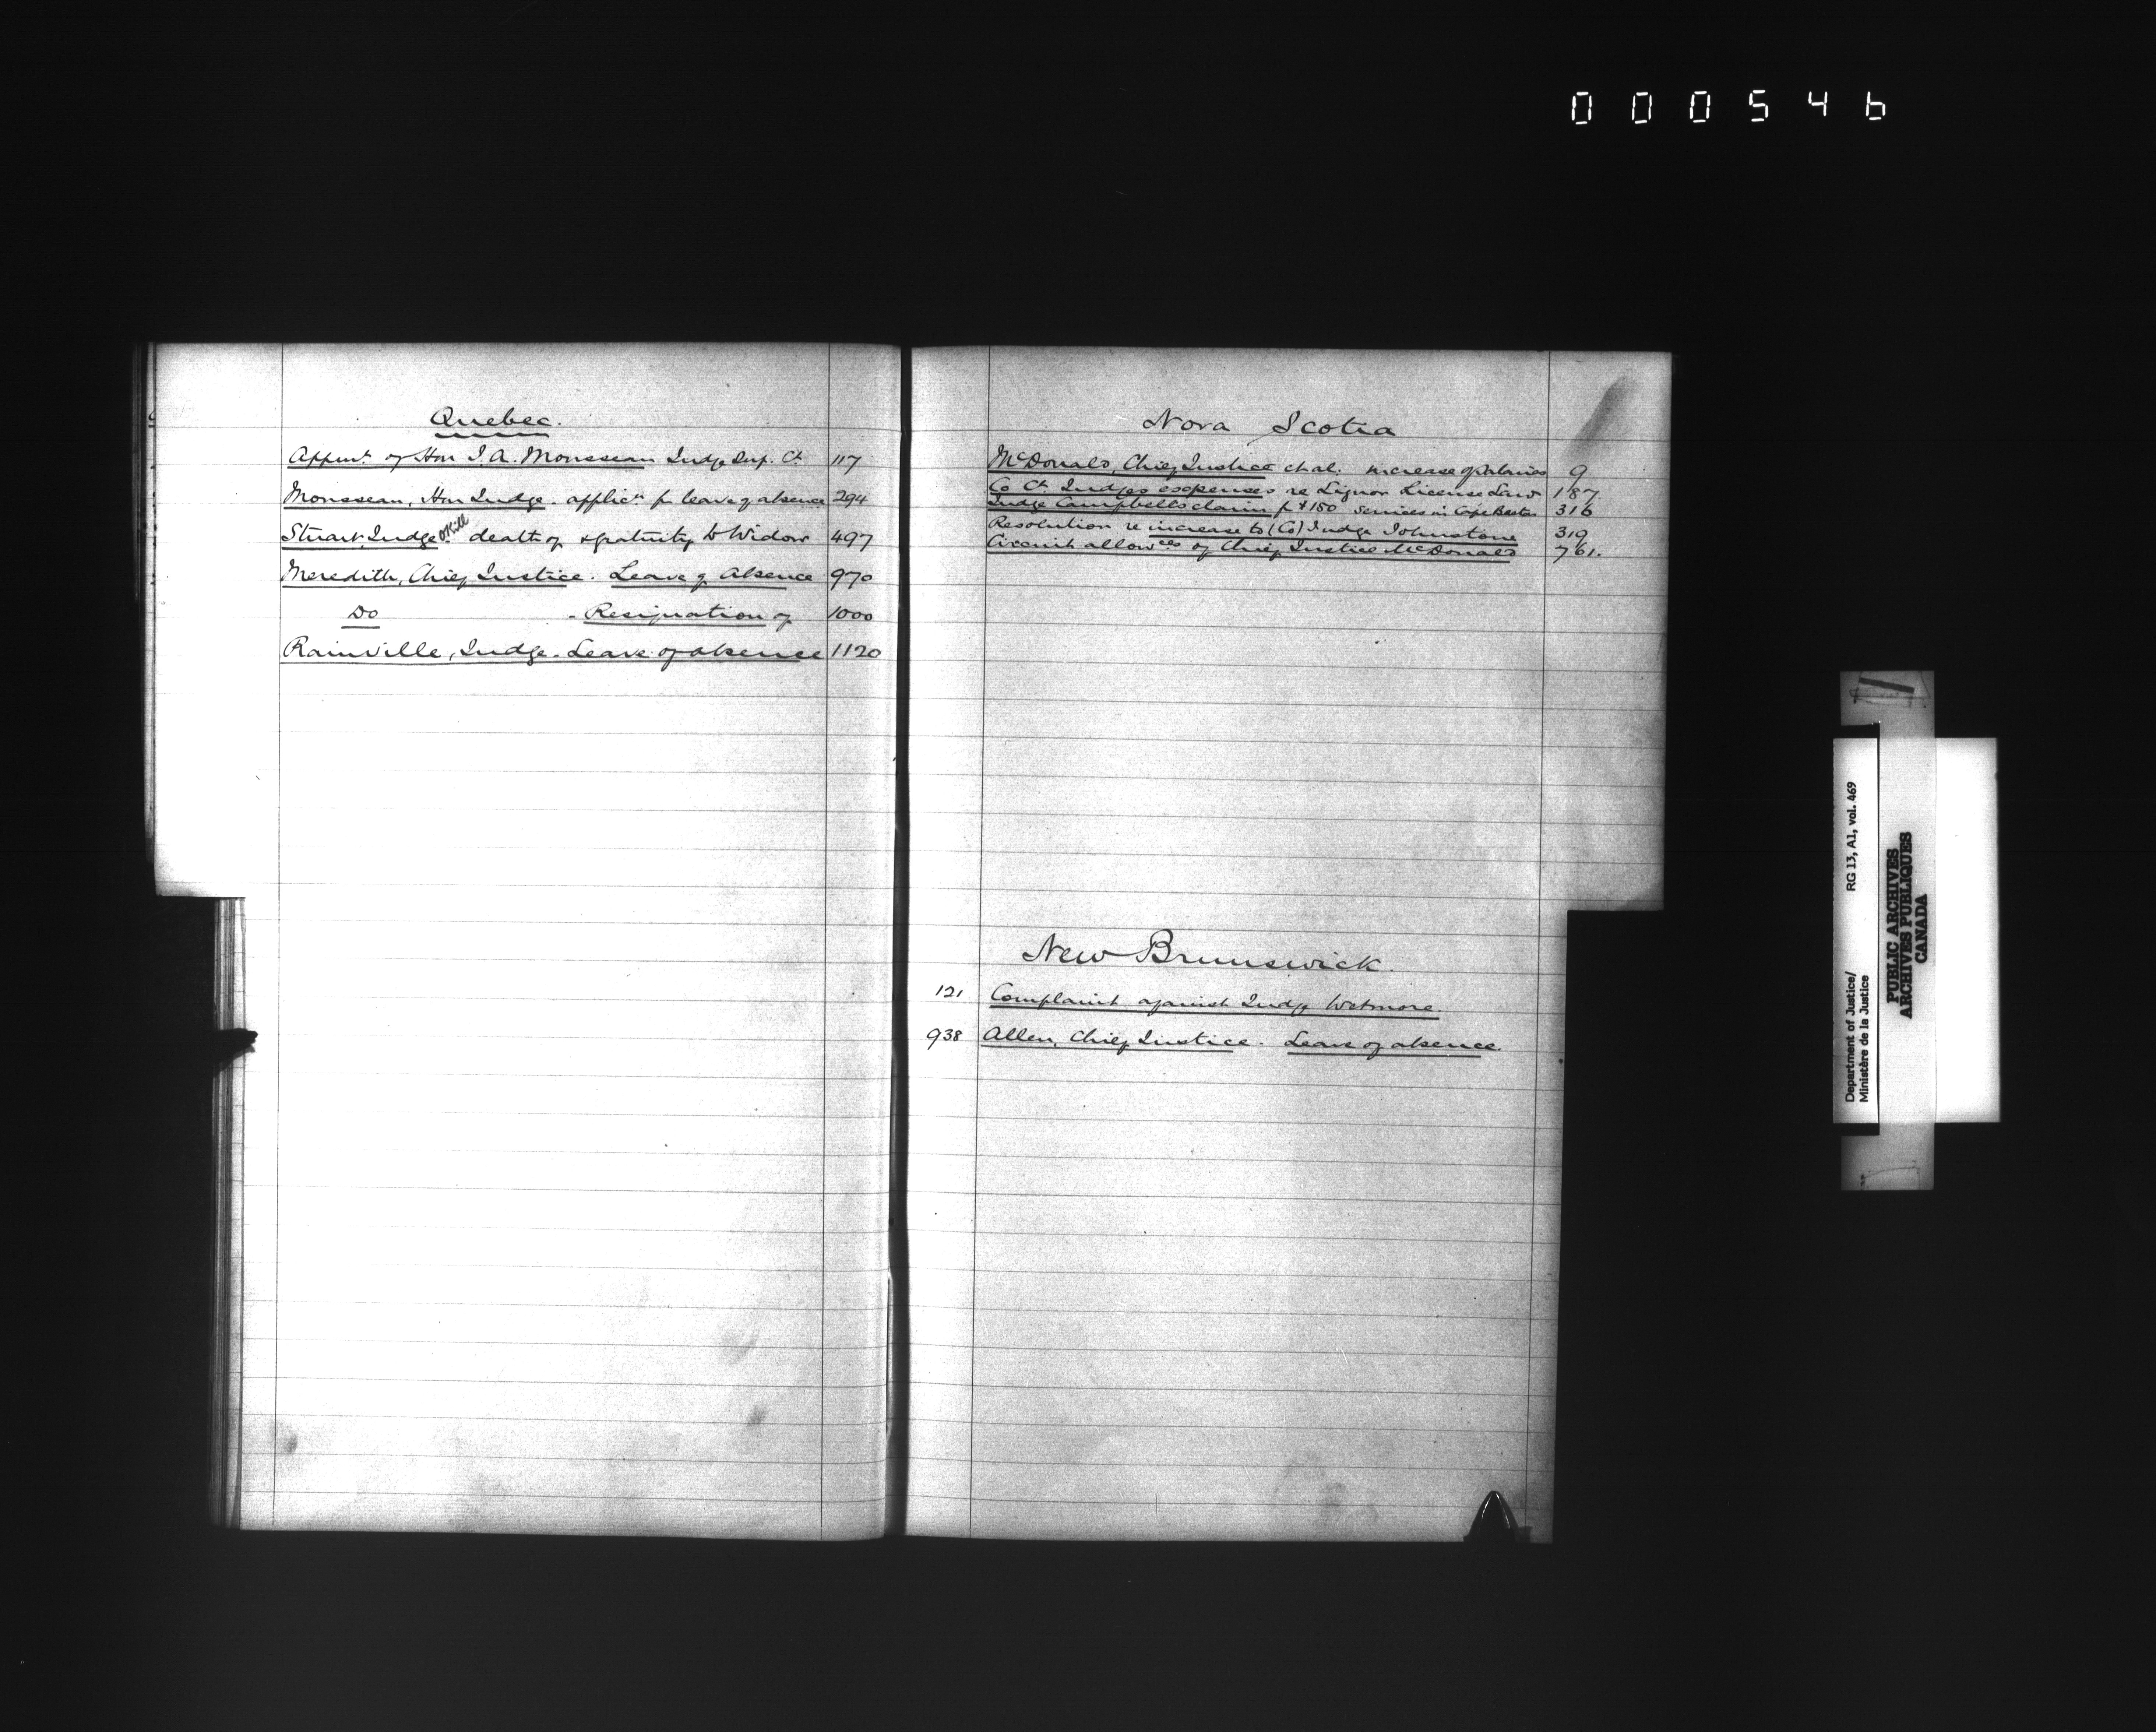 000546
Quebec.
Appmt. of Hon J. A. Mousseau Judge Sup. Ct. 117
Mousseau, Hon Judge. applicn for leave of absence 294
Stuart, Judge O'Kill death of & gratuity to Widow 497
Meredith, Chief Justice. Leave of Absence 970
Do - Resignation of 1000
Rainville, Judge. Leave of absence 1120
Nova Scotia
McDonald, Chief Justice et al. increase of salaries 9
Co Ct. Judges expenses re Liquor License Law 187
Judge Campbells claim for $150 services in Cape Breton 316
Resolution re increase to (Co) Judge Johnstone 319
Circuit allowces of Chief Justice McDonald 761.
New Brunswick.
121 Complaint against Judge Wetmore.
938 Allen, Chief Justice. Leave of absence.
Department of Justice/ RG 13, A1, vol. 469
Ministère de la Justice
PUBLIC ARCHIVES
ARCHIVES PUBLIQUES
CANADA